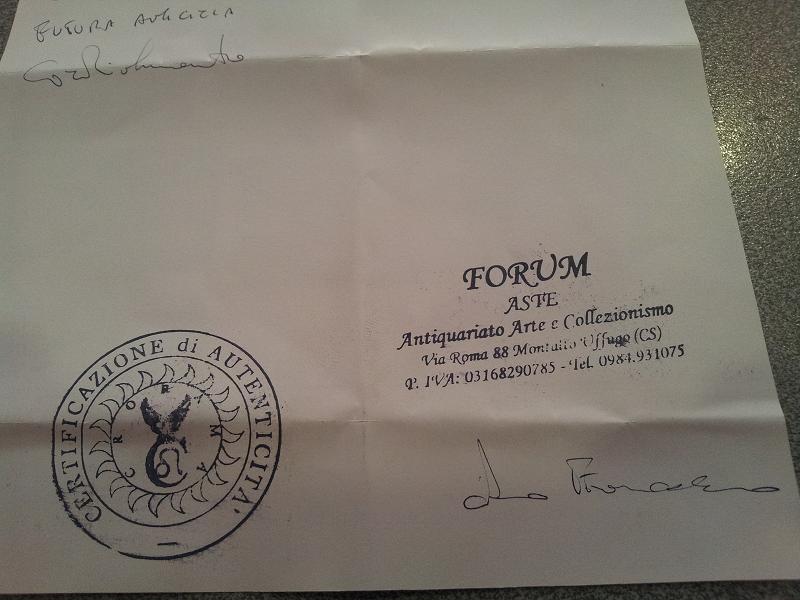 FUTURA AMICIZIA
Cordialmente
FORUM
ASTE
Antiquariato Arte e Collezionismo
Via Roma 88 Montalto Uffugo (CS)
P. IVA: 03168290785 - Tel. 0984.931075
CERTIFICAZIONE di AUTENTICITA'
CRORMA